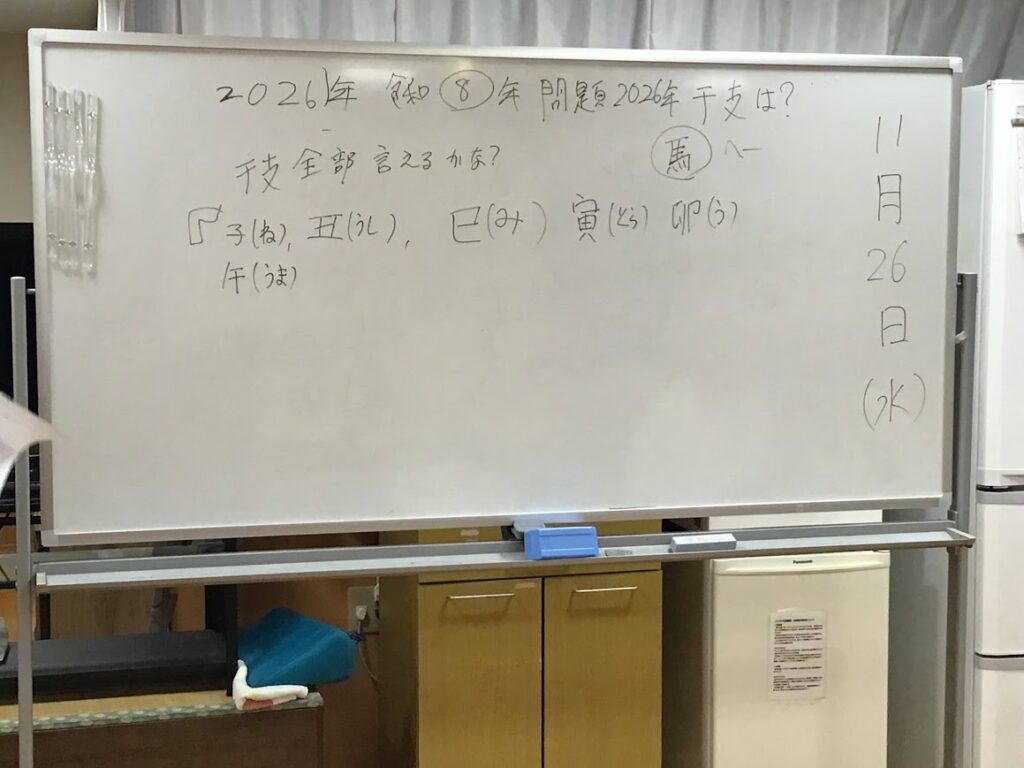 2026年 令和⑧年 問題2026年干支は?
干支全部言えるかな?
馬 へー
『子(ね), 丑(うし), 巳(み) 寅(とら) 卯(う)
午(うま)
11月26日(水)
Panasonic